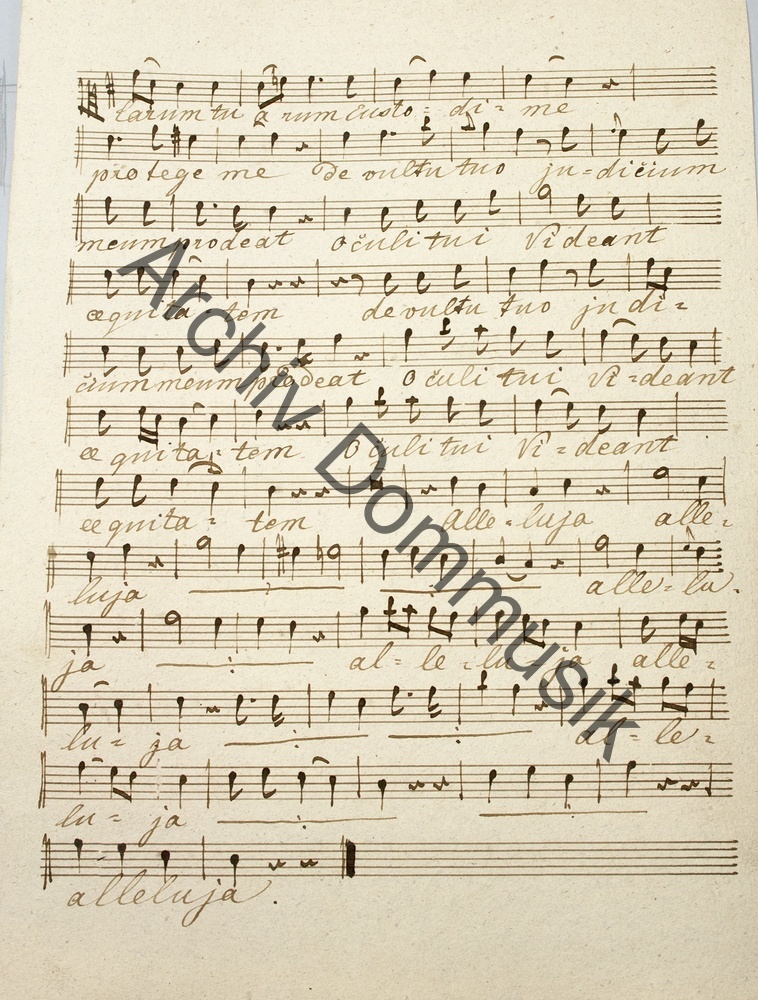 larum tu a rum custo = di = me
protege me De vultu tuo ju = dicium
meum prodeat oculi tui Videant
æquita = tem de vultu tuo judi =
cium meum prodeat oculi tui Vi = deant
æquita = tem Oculi tui Vi = deant
æquita = tem Alle = luja alle =
luja alle = lu =
ja al = le = lu = ja alle =
lu = ja al = le =
lu = ja
alleluja.
Archiv Dommusik